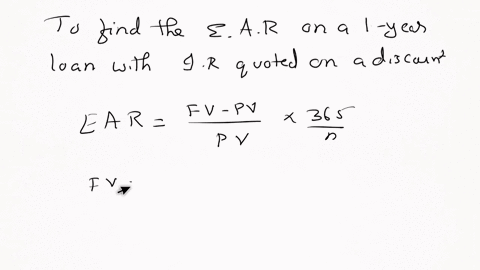 To find the E.A.R on a 1-year
loan with I.R quoted on a discount
EAR = FV-PV / PV × 365 / n
FV